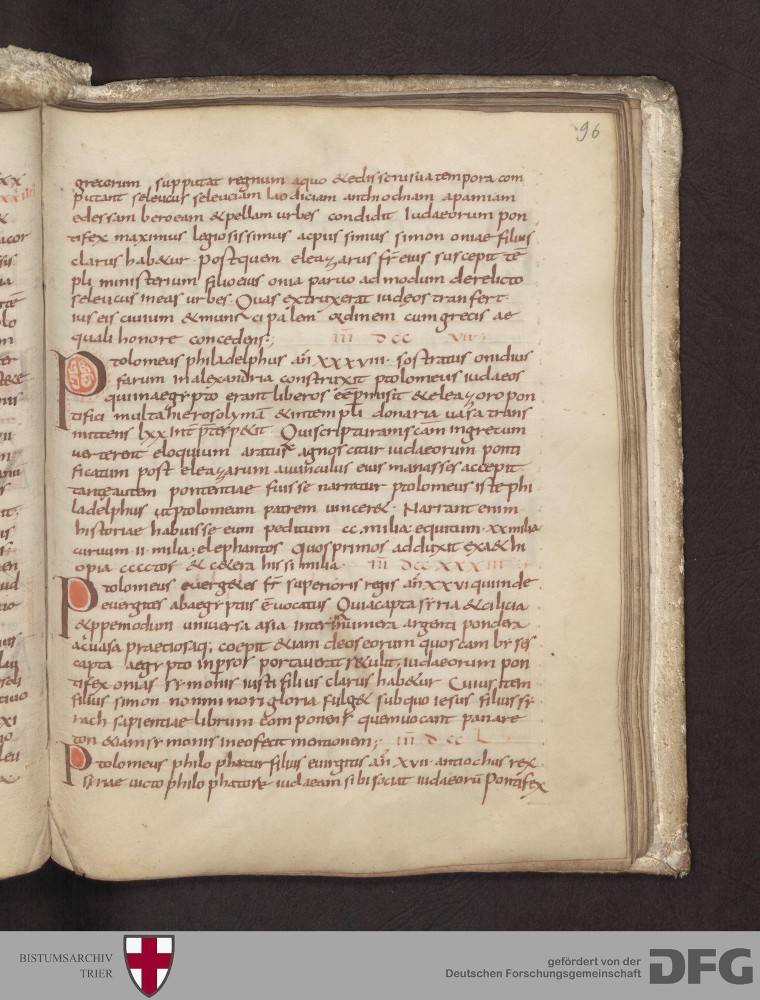 96
grecorum supputat regnum aquo & edissenisua tempora com
putant seleucus seleuciam laodiciam anthiochiam apamiam
edessam beroeam & pellam urbes condidit Iudaeorum pon
tifex maximus legiosissimus acpiissimus simon oniae filius
clarus hab&ur. postquem eleazarus fr eius suscepit te
pli ministerium filio eius onia paruo admodum derelicto
seleucus ineas urbes. Quas extruxerat iudeos transfert.
ius eis ciuium & municipalem ordinem cum grecis ae
quali honore concedens;
Ptolomeus philadelphus añ XXXVIII. sostratus onidius
farum inalexandria construxit ptolomeus iudaeos
qui inaegypto erant liberos eē permisit & eleazoro pon
tifici multa hierosolymā & intempli donaria uasa trans
mittens lxx intpterp&it. Qui scripturam scam ingrecum
uerterent eloquium aratus agnoscitur iudaeorum ponti
ficatum post eleazarum auunculus eius manasses accepit
tante autem pontentiae fuisse narratur ptolomeus iste phi
ladelphus ut ptolomeum patrem uincer&. Narrant enim
historiae habuisse eum peditum cc. milia equitum. xx milia
curuum ii. milia; elephantos quos primos adduxit exaethi
opia cccctos & c&era his similia. III DCC XXXIII
Ptolomeus euerg&es fr superioris regis añ XXVI qui inde
euergetis abaegyptiis ē uocatus Quia capta syria & cilicia
& ppemodum uniuersa asia inter innumera argenti pondera
ac uasa praeciosaq; coepit &iam deos eorum quos cambyses
capta aegypto inpersor portauerat r&ulit; iudaeorum pon
tifex onias symonis iusti filius clarus hab&ur Cuius item
filius simon non minori gloria fulg& sub quo iesus filius sy
rach sapientiae librum componens quem uocant panare
ton &iam symonis ineo fecit mentionem; III D CC L
Ptolomeus philophatur filius euirgitis añ XVII. antiochus rex
syriae uicto philophatore iudaeam sibi sociat iudaeorū pontifex
BISTUMSARCHIV
TRIER
gefördert von der
Deutschen Forschungsgemeinschaft
DFG